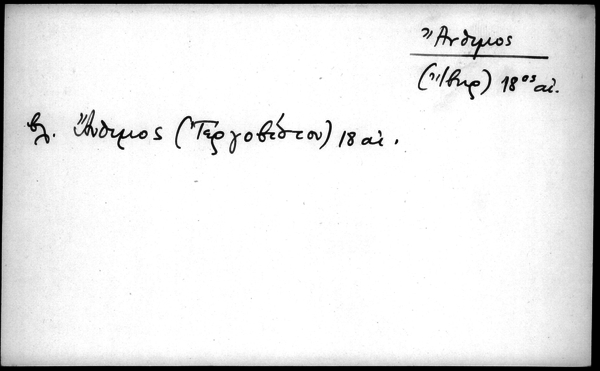 Ἄνθιμος
(Ἴβηρ) 18ος αἰ.
βλ. Ἄνθιμος (Τεργοβίστου) 18 αἰ.